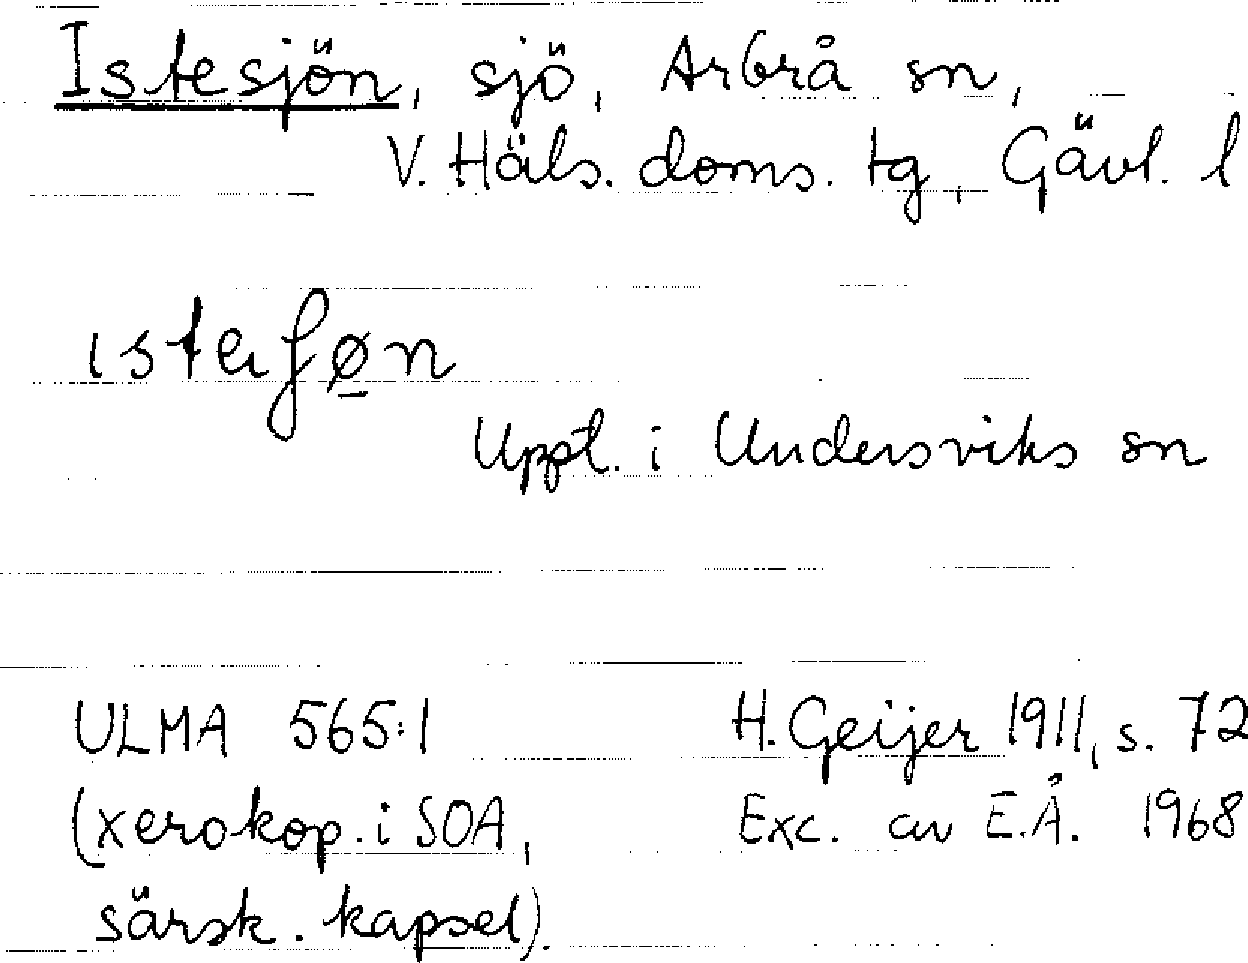 Istesjön, sjö, Arbrå sn,
V. Häls. doms. tg, Gävl. l
Uppt. i Undersviks sn
ULMA 565:1 H. Geijer 1911, s. 72
(xerokop. i SOA, Exc. av E.Å. 1968
särsk. kapsel).